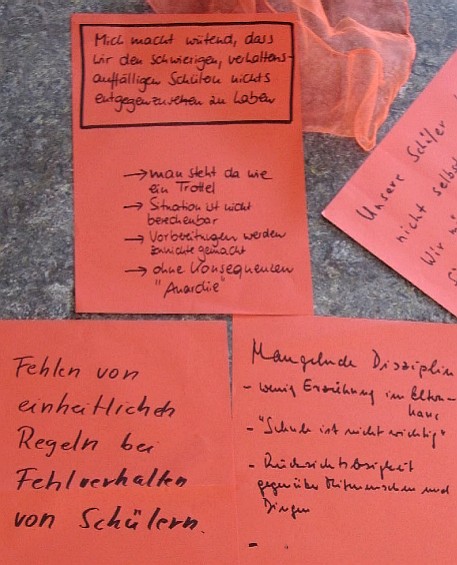 Mich macht wütend, dass
wir den schwierigen, verhaltens-
auffälligen Schülern nichts
entgegenzusetzen zu haben
→ man steht da wie
ein Trottel
→ Situation ist nicht
berechenbar
→ Vorbereitungen werden
zunichte gemacht
→ ohne Konsequenzen
"Anarchie"
Unsere Schüler
nicht selbst
Wir
Fehlen von
einheitlichen
Regeln bei
Fehlverhalten
von Schülern.
Mangelnde Disziplin
- wenig Erziehung im Eltern-
haus
- "Schule ist nicht wichtig"
- Rücksichtslosigkeit
gegenüber Mitmenschen und
Dingen
-